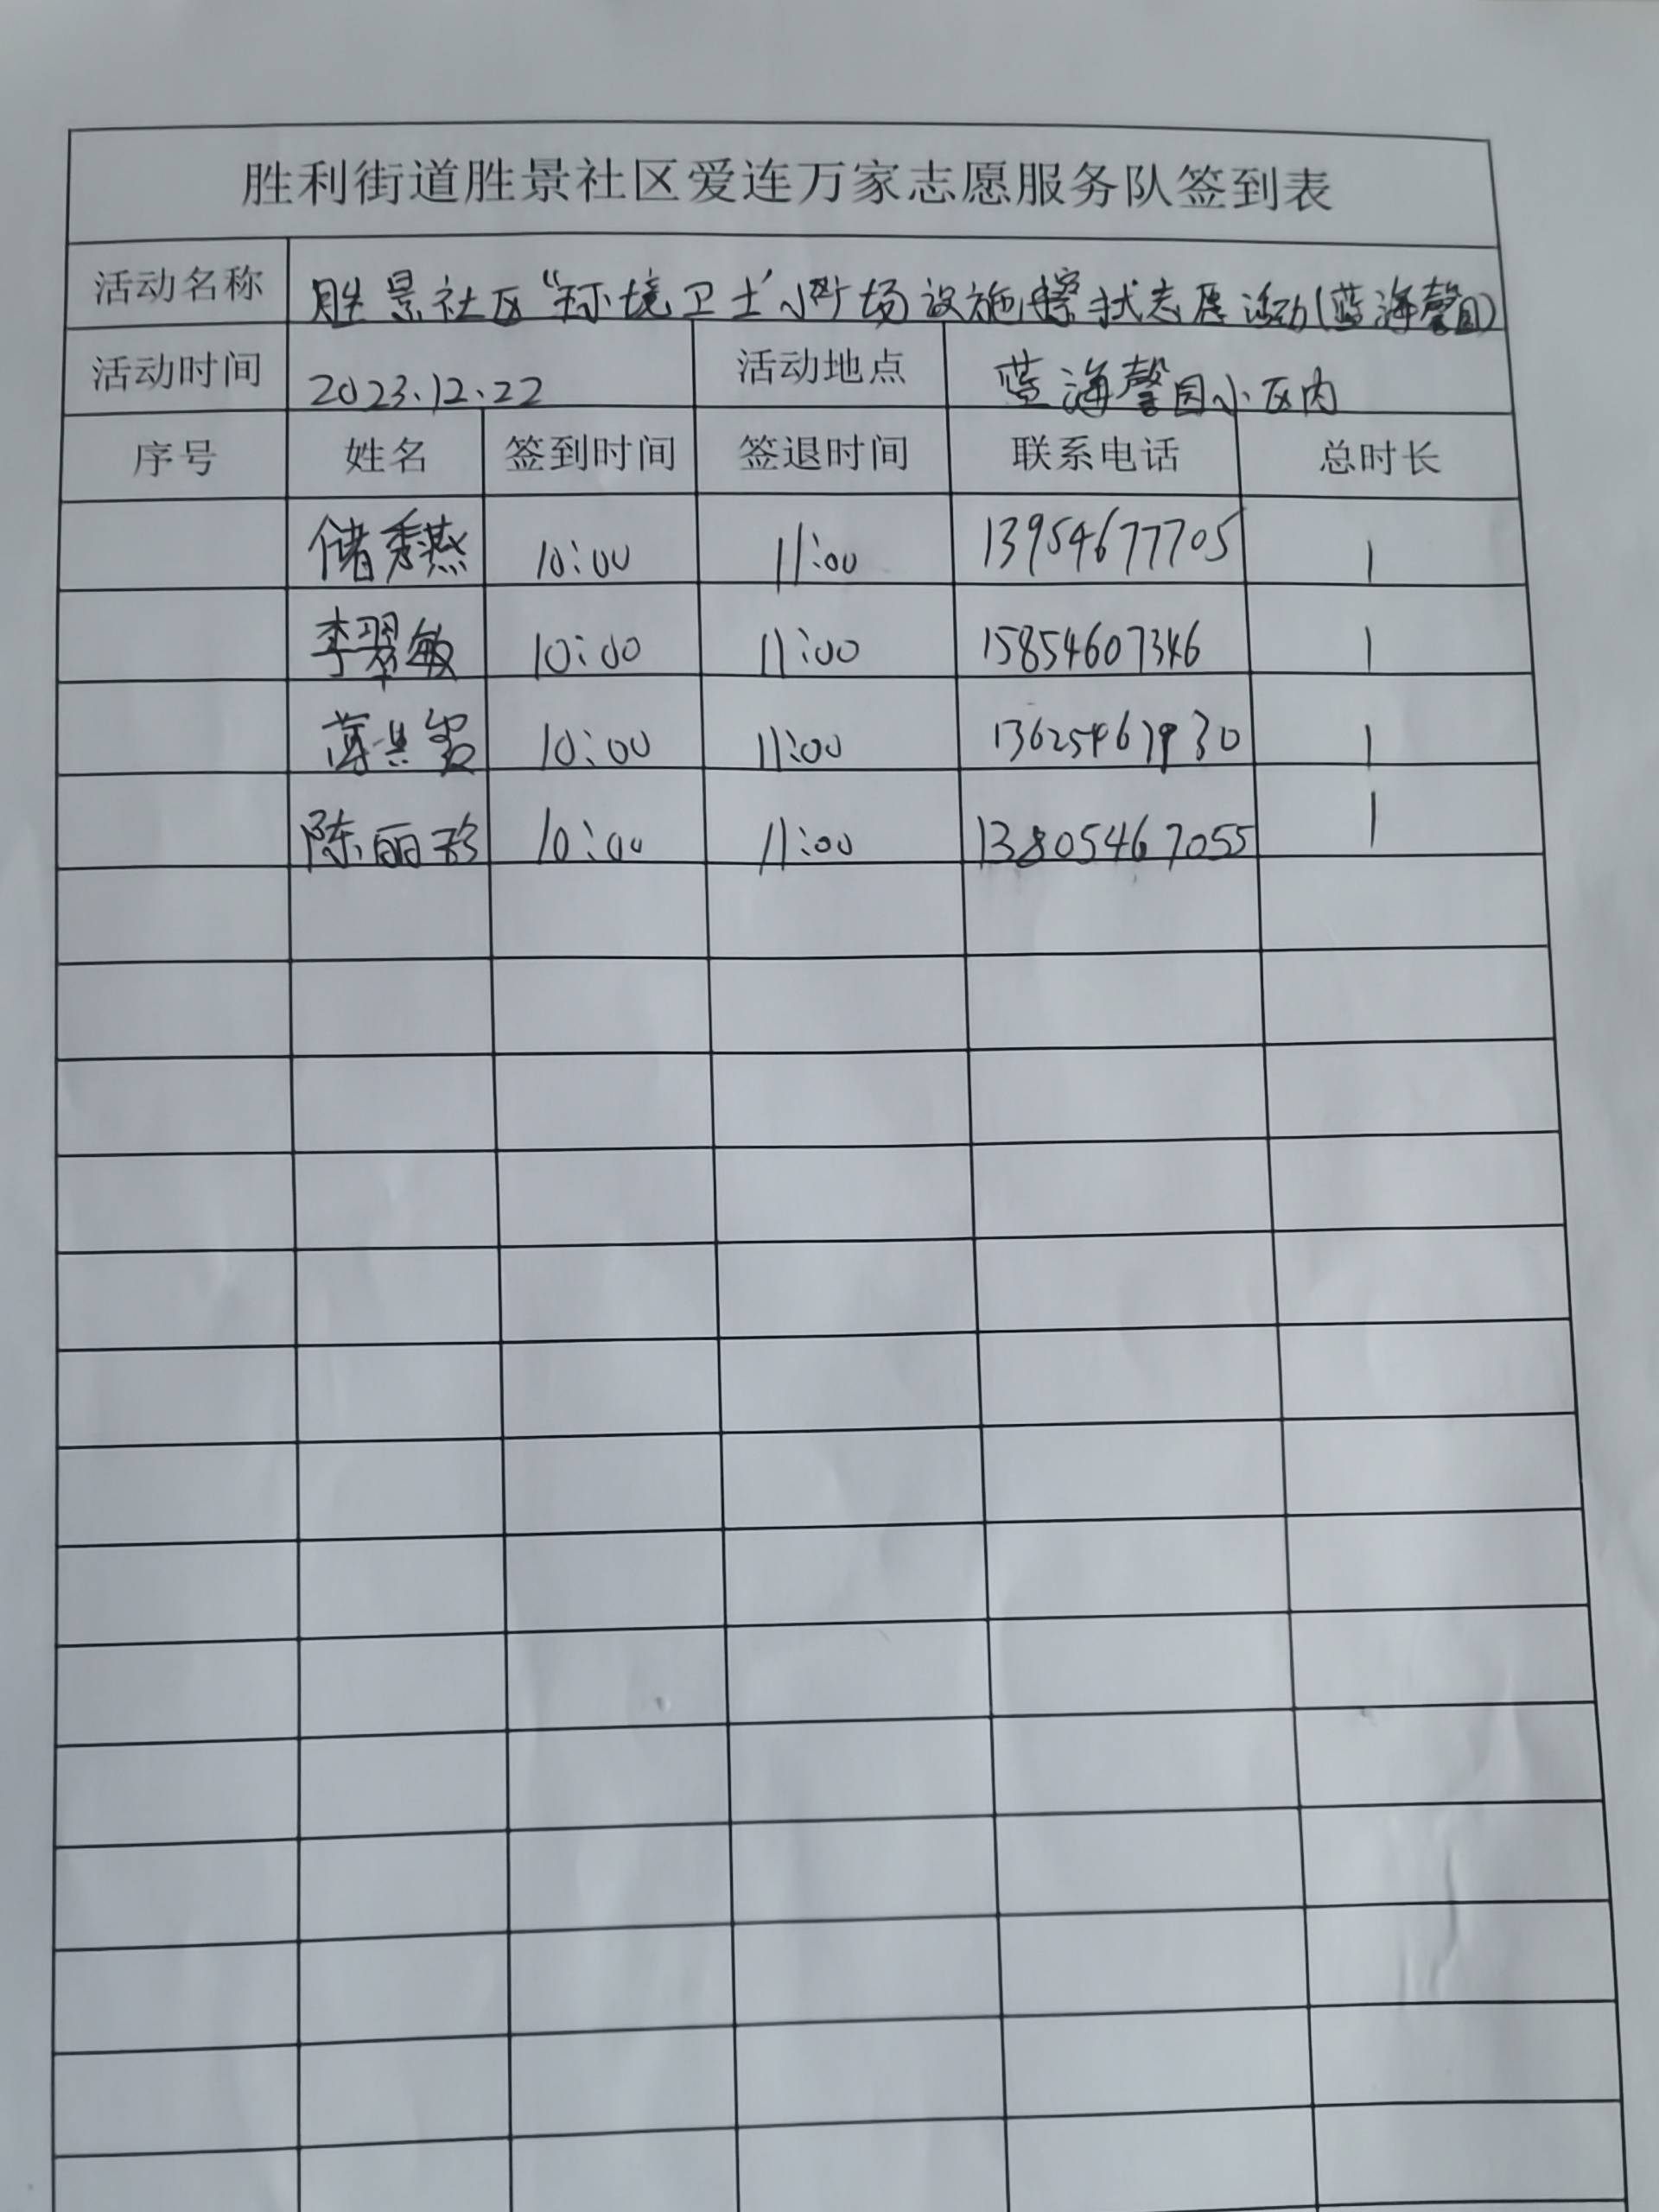 胜利街道胜景社区爱连万家志愿服务队签到表
活动名称 胜景社区“环境卫士”小广场设施擦拭志愿活动(蓝海馨园)
活动时间 2023.12.22 活动地点 蓝海馨园小区内
序号 姓名 签到时间 签退时间 联系电话 总时长
储秀燕 10:00 11:00 13954677705 1
李翠敏 10:00 11:00 15854607346 1
10:00 11:00 1
陈丽珍 10:00 11:00 13805467055 1